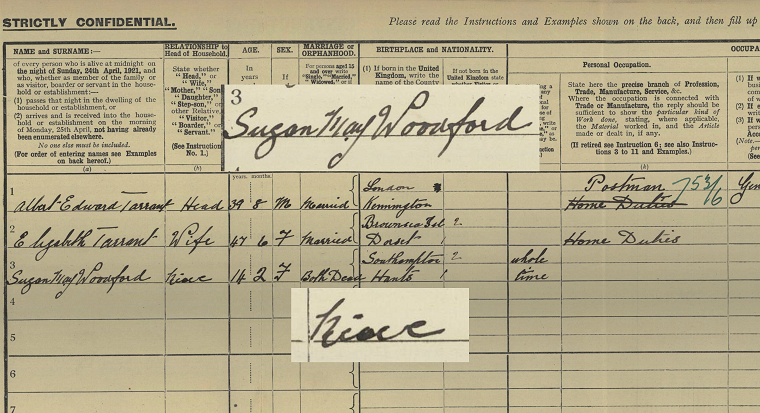 STRICTLY CONFIDENTIAL.
Please read the Instructions and Examples shown on the back, and then fill up
NAME and SURNAME:—
of every person who is alive at midnight on
the night of Sunday, 24th April, 1921, and
who, whether as member of the family or
as visitor, boarder or servant in the house-
hold or establishment:—
(1) passes that night in the dwelling of the
household or establishment, or
(2) arrives and is received into the house-
hold or establishment on the morning
of Monday, 25th April, not having already
been enumerated elsewhere.
No one else must be included.
(For order of entering names see Examples
on back hereof.)
(a)
RELATIONSHIP to
Head of Household.
State whether
"Head," or
"Wife,"
"Mother," "Son,"
"Daughter,"
"Step-son," or
other Relative,
"Visitor,"
"Boarder," or
"Servant."
(See Instruction
No. 1.)
(b)
AGE.
In
years
years. months.
SEX.
If
MARRIAGE or
ORPHANHOOD.
For persons aged 15
and over write
"Single," "Married,"
"Widowed," or if
BIRTHPLACE and NATIONALITY.
(1) If born in the United
Kingdom, write the
name of the County
If not born in the
United Kingdom state
OCCUPA
Personal Occupation.
State here the precise branch of Profession,
Trade, Manufacture, Service, &c.
Where the occupation is connected with
Trade or Manufacture, the reply should
be sufficient to show the particular kind of
Work done, stating, where applicable,
the Material worked in, and the Article
made or dealt in, if any.
(If retired see Instruction 6; see also Instruc-
tions 3 to 11 and Examples.)
(k)
3
Suzan May Woodford
1
Albert Edward Tarrant Head 39 8 M Married London Kennington Postman
Home Duties
2
Elizabeth Tarrant Wife 47 6 F Married Brownsea Isl Dorset Home Duties
3
Suzan May Woodford Niece 14 2 F Both Dead Southampton Hants whole time
Niece
4
5
6
7